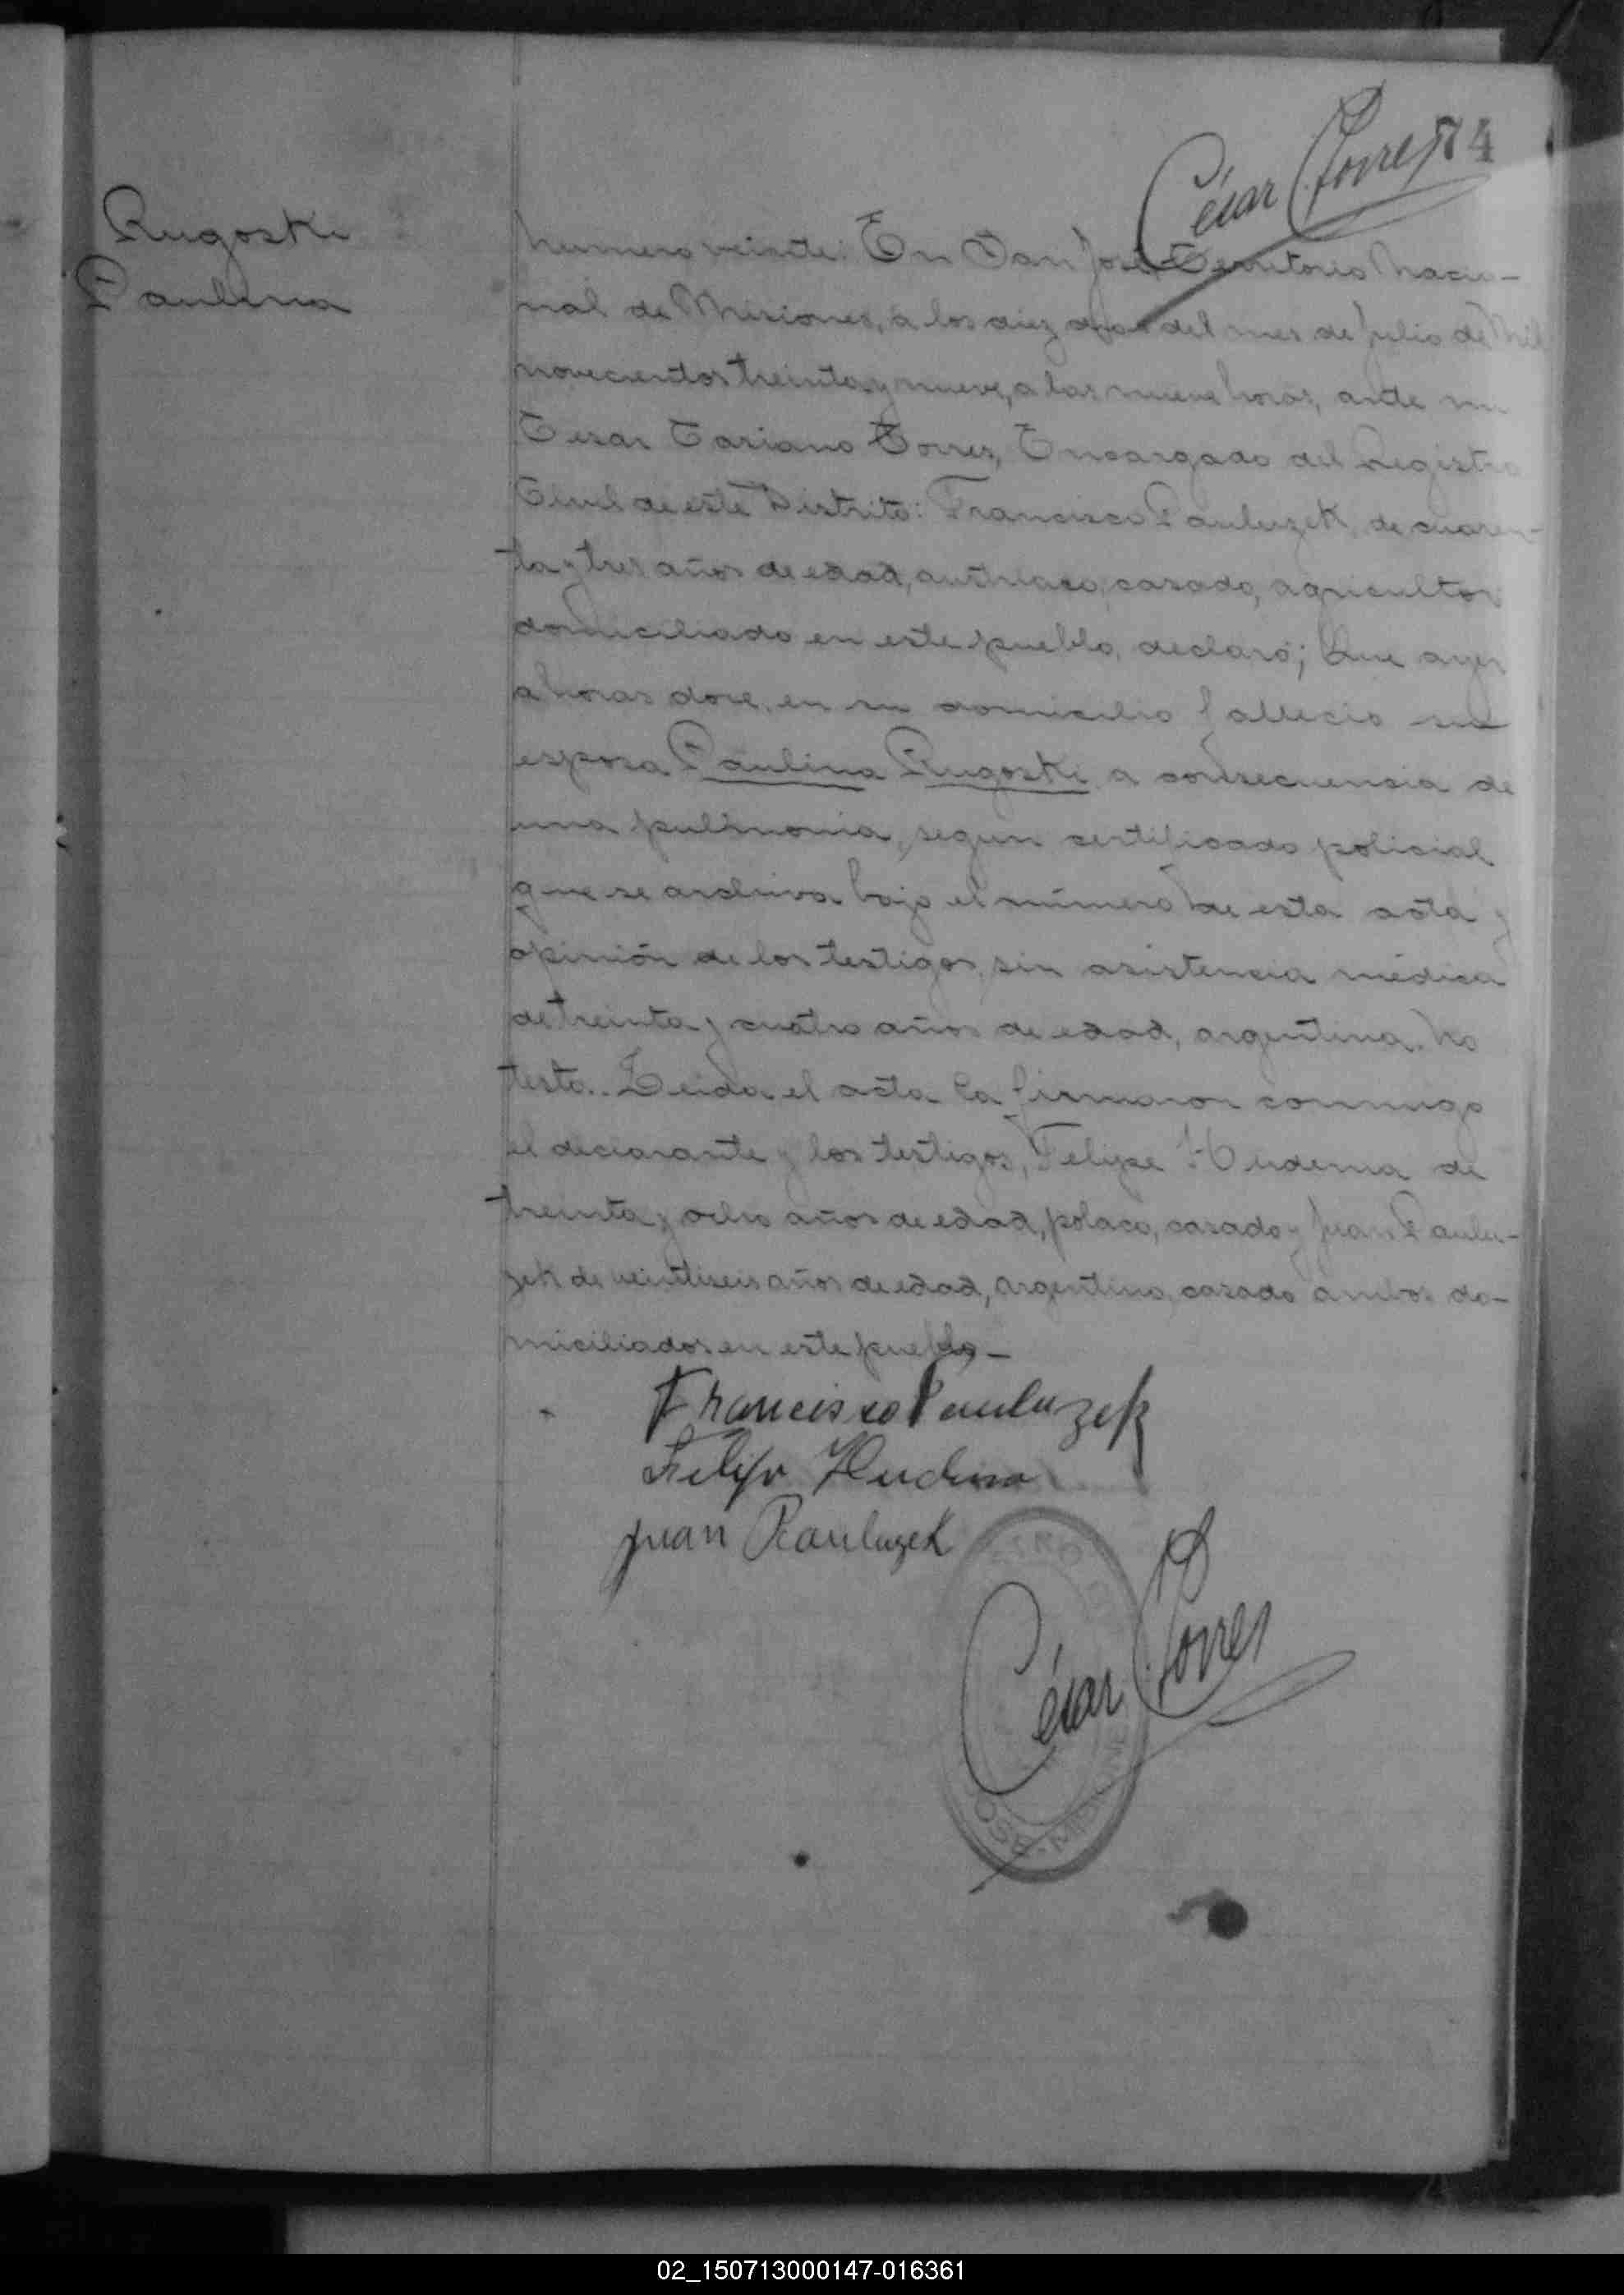 César Torres 74
Rugoski
Paulina
Numero veinte: En San José, Territorio Nacio-
nal de Misiones, a los diez dias del mes de Julio de Mil
novecientos treinta y nueve, a las nueve horas, ante mi
Cesar Cariano Torres, Encargado del Registro
Civil de este Distrito: Francisco Pauluzek, de cuaren-
ta y tres años de edad, austriaco, casado, agricultor
domiciliado en este pueblo, declaró; Que ayer
a horas doce, en su domicilio falleció su
esposa Paulina Rugoski a consecuencia de
una pulmonia, segun certificado policial
que se archiva bajo el número de esta acta y
opinión de los testigos, sin asistencia médica
de treinta y cuatro años de edad, argentina. No
testo.. Leida el acta la firmaron conmigo
el declarante y los testigos, Felipe Hudema de
treinta y ocho años de edad, polaco, casado y Juan Paulu-
zek de veintiseis años de edad, argentino, casado ambos do-
miciliados en este pueblo,-
Francisco Pauluzek
Felipe Hudema
Juan Pauluzek
César Torres
JOSE - MISIONES
02_150713000147-016361